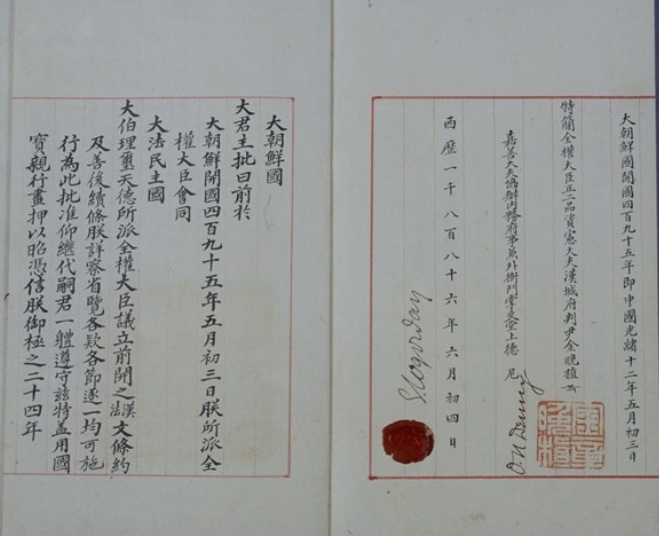 大朝鮮國開國四百九十五年即中國光緒十二年五月初三日
特簡全權大臣正二品資憲大夫漢城府判尹金晚植
嘉善大夫協辦內務府事兼外衙門掌交堂上德 尼
O. N. Denny
西歷一千八百八十六年六月初四日
G. Cogordan
大朝鮮國
大君主批曰前於
大朝鮮開國四百九十五年五月初三日朕所派全
權大臣會同
大法民主國
大伯理璽天德所派全權大臣議立前開之漢法文條約
及善後續條朕詳察省覽各欵各節逐一均可施
行為此批准仰繼代嗣君一體遵守玆特盖用國
寶親行畫押以昭憑信朕御極之二十四年